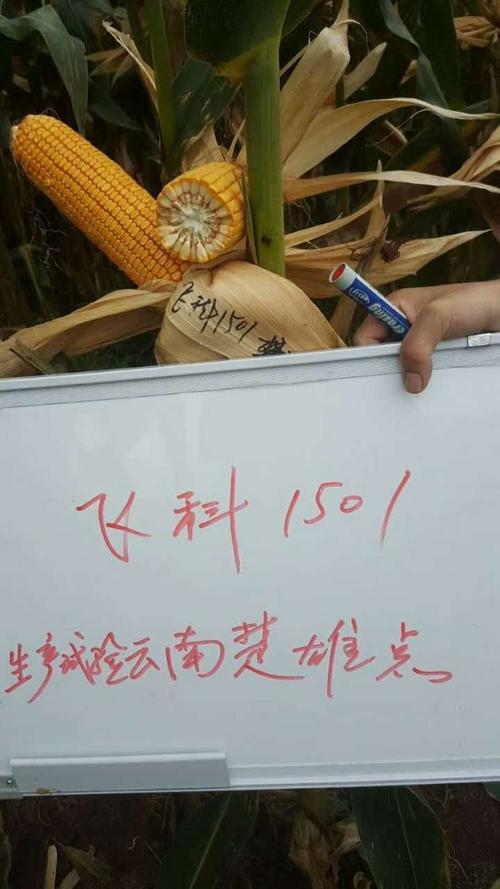 飞科1501
飞科1501
生产试验云南楚雄点